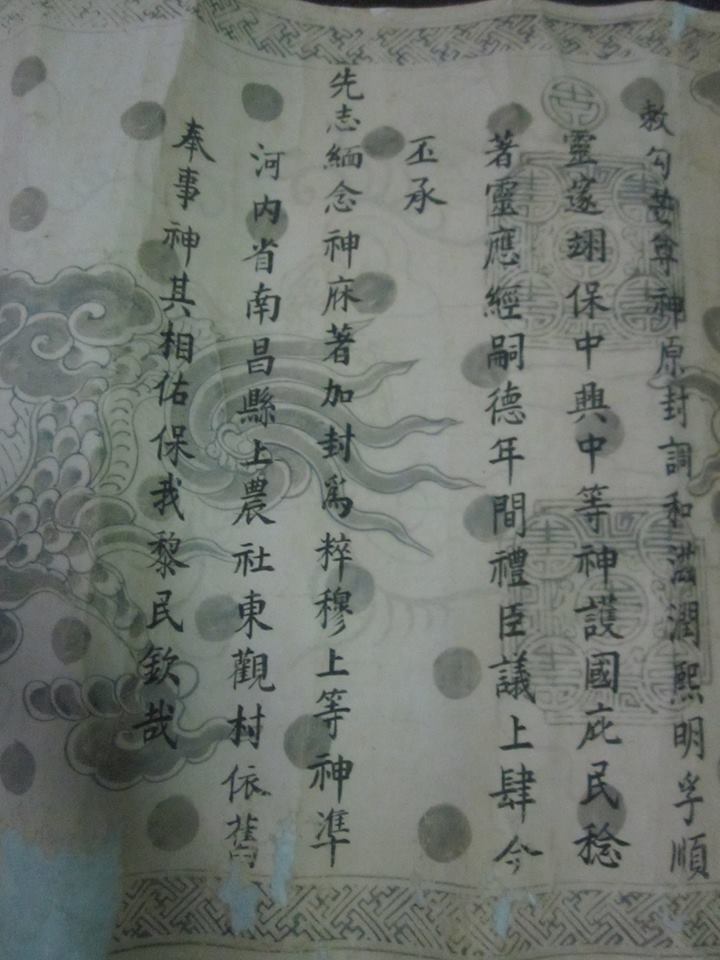 敕勾芒尊神原封調和滋潤熙明孚順
靈邃翊保中興中等神護國庇民稔
著靈應經嗣德年間禮臣議上肆今
丕承
先志緬念神庥著加封爲粹穆上等神準
河內省南昌縣上農社東觀村依舊
奉事神其相佑保我黎民欽哉